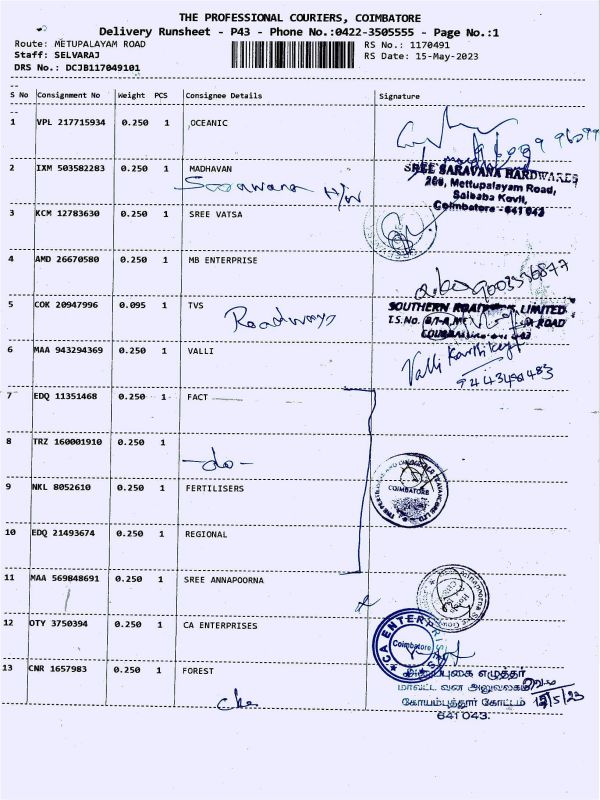 THE PROFESSIONAL COURIERS, COIMBATORE
Delivery Runsheet - P43 - Phone No.:0422-3505555 - Page No.:1
Route: METUPALAYAM ROAD
RS No.: 1170491
Staff: SELVARAJ
RS Date: 15-May-2023
DRS No.: DCJB117049101
S No Consignment No Weight PCS Consignee Details Signature
1 VPL 217715934 0.250 1 OCEANIC
2 IXM 503582283 0.250 1 MADHAVAN
Saravana H/w
SREE SARAVANA HARDWARES
266, Mettupalayam Road,
Saibaba Kovil,
Coimbatore - 641 043
3 KCM 12783630 0.250 1 SREE VATSA
4 AMD 26670580 0.250 1 MB ENTERPRISE
5 COK 20947996 0.095 1 TVS
Roadways
SOUTHERN LIMITED
T.S.No. ROAD
6 MAA 943294369 0.250 1 VALLI
Valli
7 EDQ 11351468 0.250 1 FACT
8 TRZ 160001910 0.250 1
-do-
COIMBATORE
9 NKL 8052610 0.250 1 FERTILISERS
10 EDQ 21493674 0.250 1 REGIONAL
11 MAA 569848691 0.250 1 SREE ANNAPOORNA
12 OTY 3750394 0.250 1 CA ENTERPRISES
CA ENTERPRISES
Coimbatore
13 CNR 1657983 0.250 1 FOREST
எழுத்தர்
மாவட்ட வன அலுவலகம்
கோயம்புத்தூர் கோட்டம்
641 043.
15/5/23